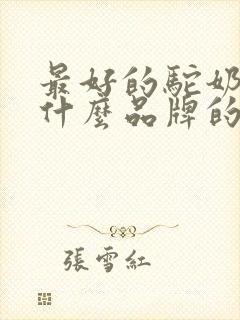 最好的駝奶
什麼品牌的
張雪紅